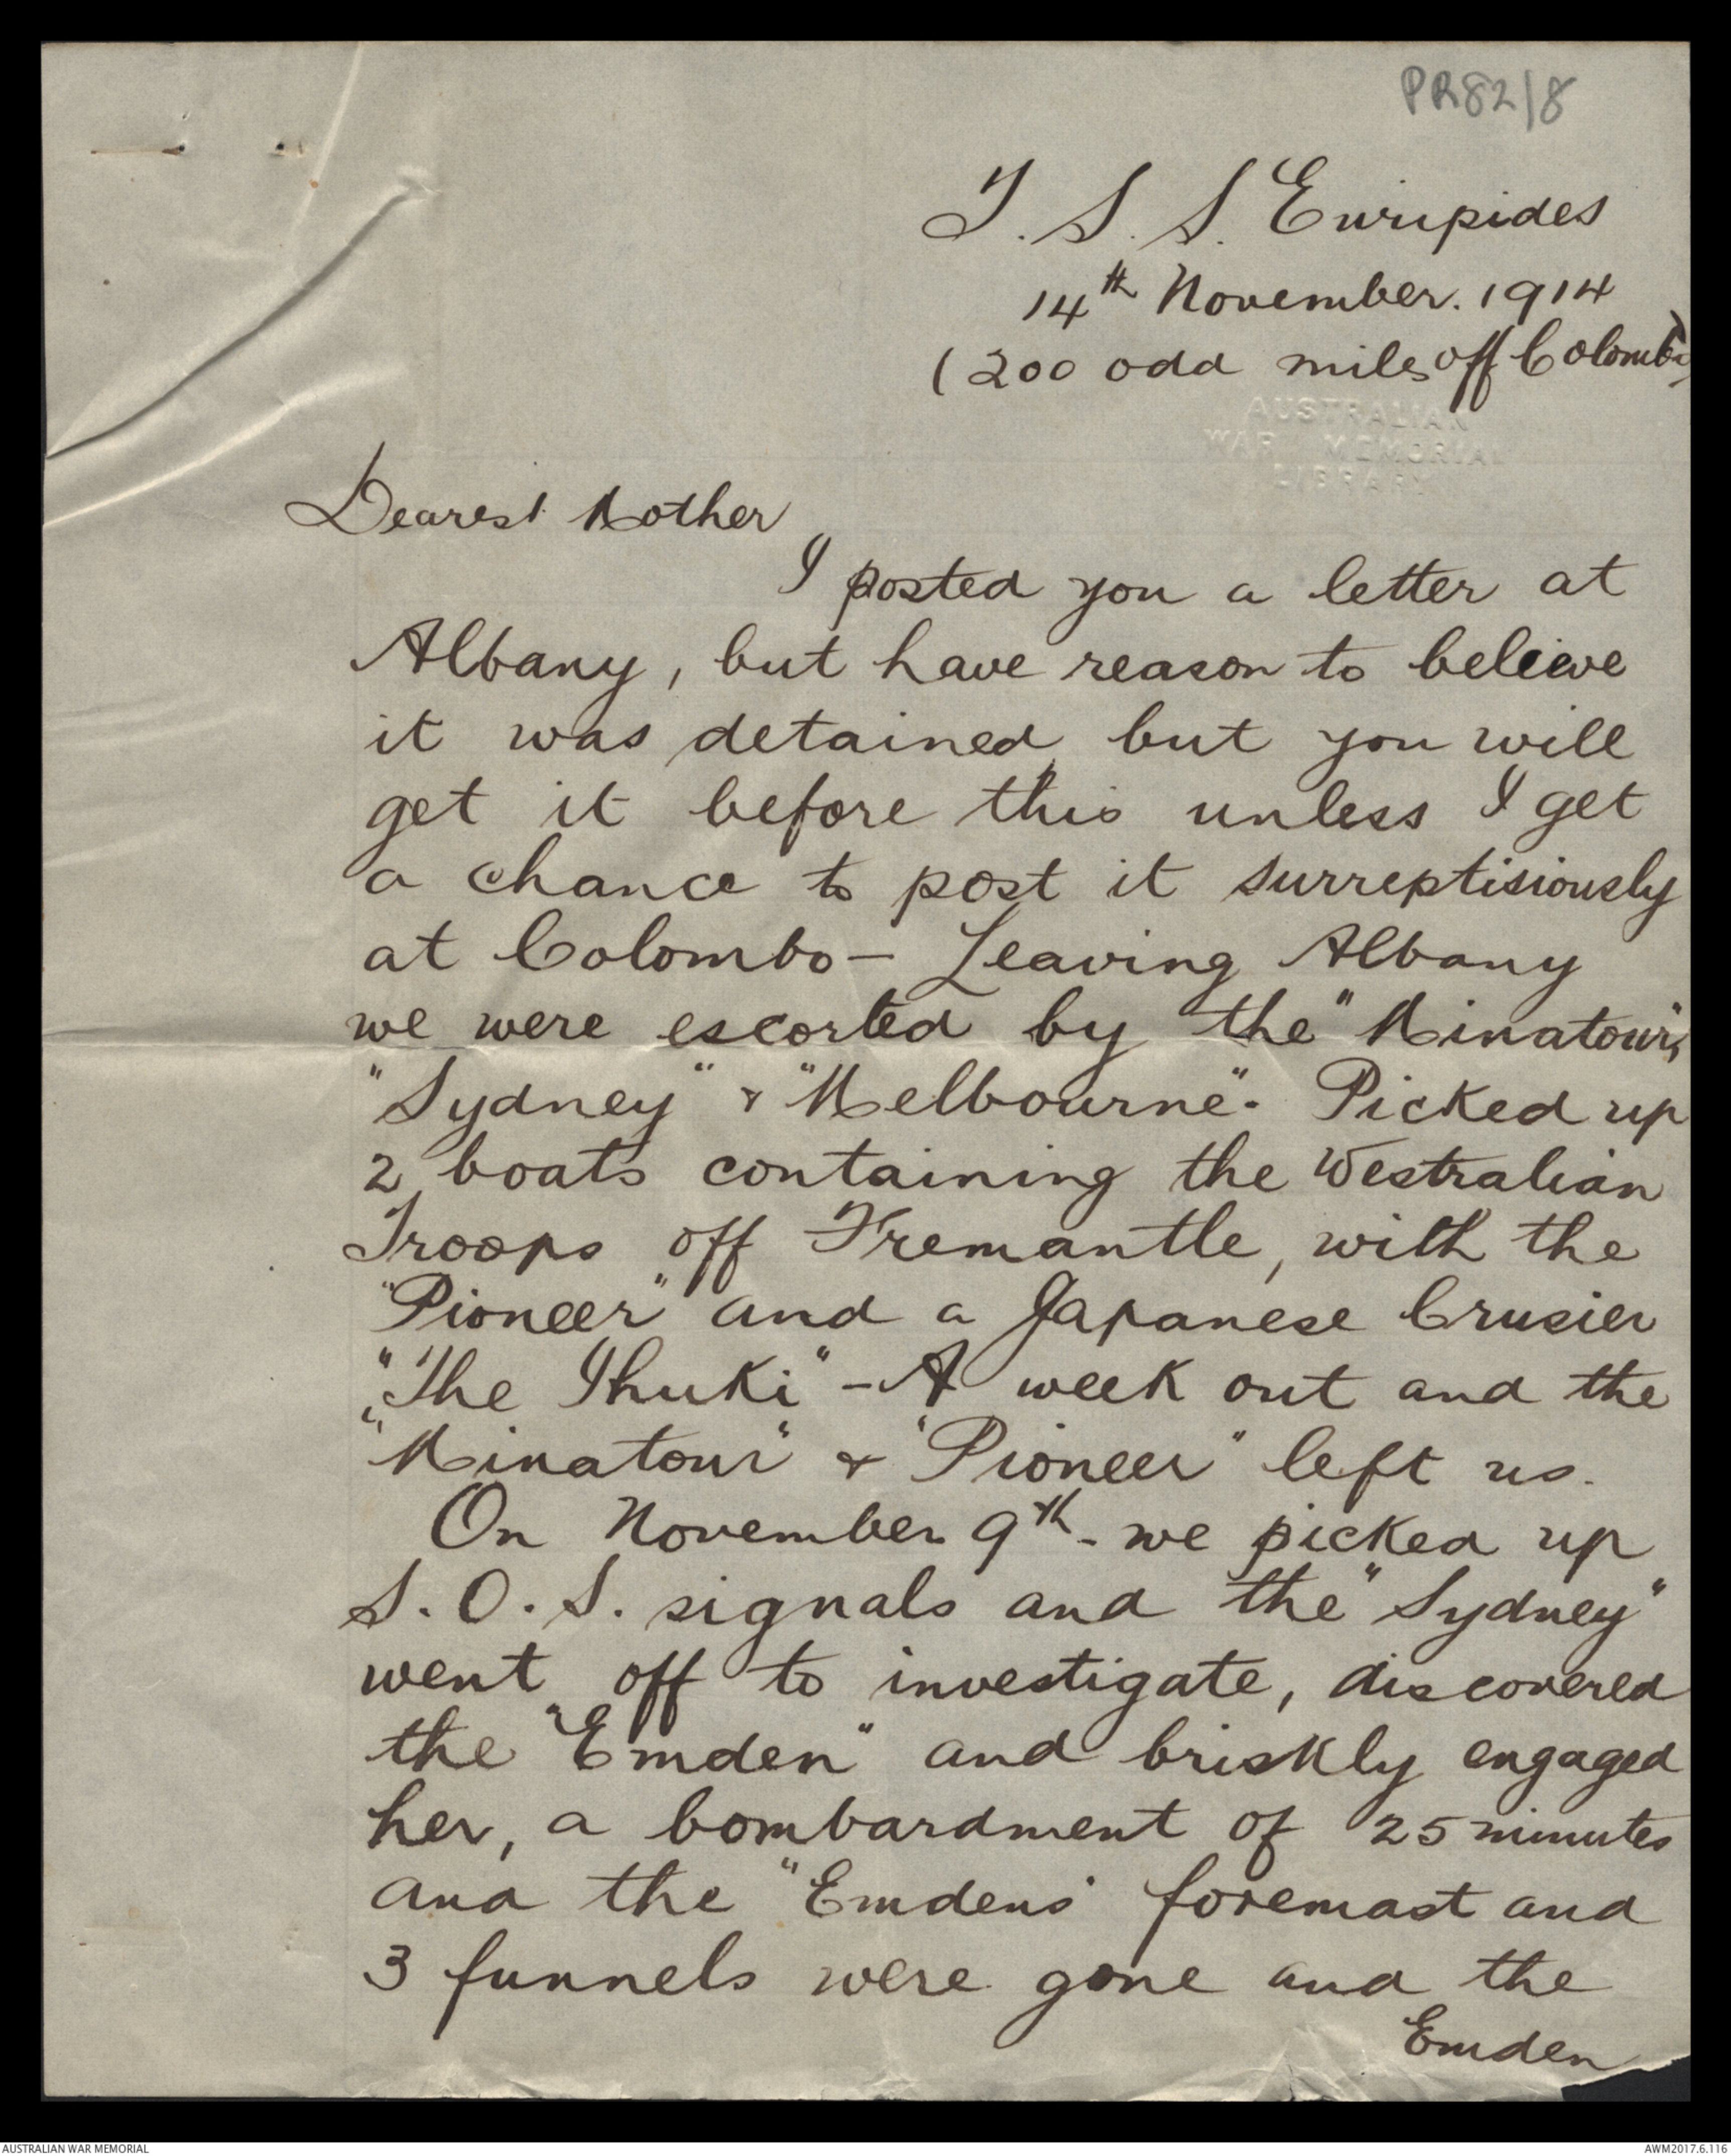 PR82/8
T.S.S. Euripides
14th November. 1914
(200 odd miles off Colombo)
AUSTRALIAN
WAR MEMORIAL
LIBRARY
Dearest Mother
I posted you a letter at
Albany, but have reason to beleive
it was detained, but you will
get it before this unless I get
a chance to post it surreptisiously
at Colombo - Leaving Albany
we were escorted by the "Minatour",
"Sydney" & "Melbourne". Picked up
2 boats containing the Westralian
Troops off Fremantle, with the
"Pioneer" and a Japanese Crusier
"The Ihuki" - A week out and the
"Minatour" & "Pioneer" left us.
On November 9th - we picked up
S.O.S. signals and the "Sydney"
went off to investigate, discovered
the "Emden" and briskly engaged
her, a bombardment of 25 minutes
and the "Emdens' foremast and
3 funnels were gone and the
Emden
AUSTRALIAN WAR MEMORIAL
AWM2017.6.116